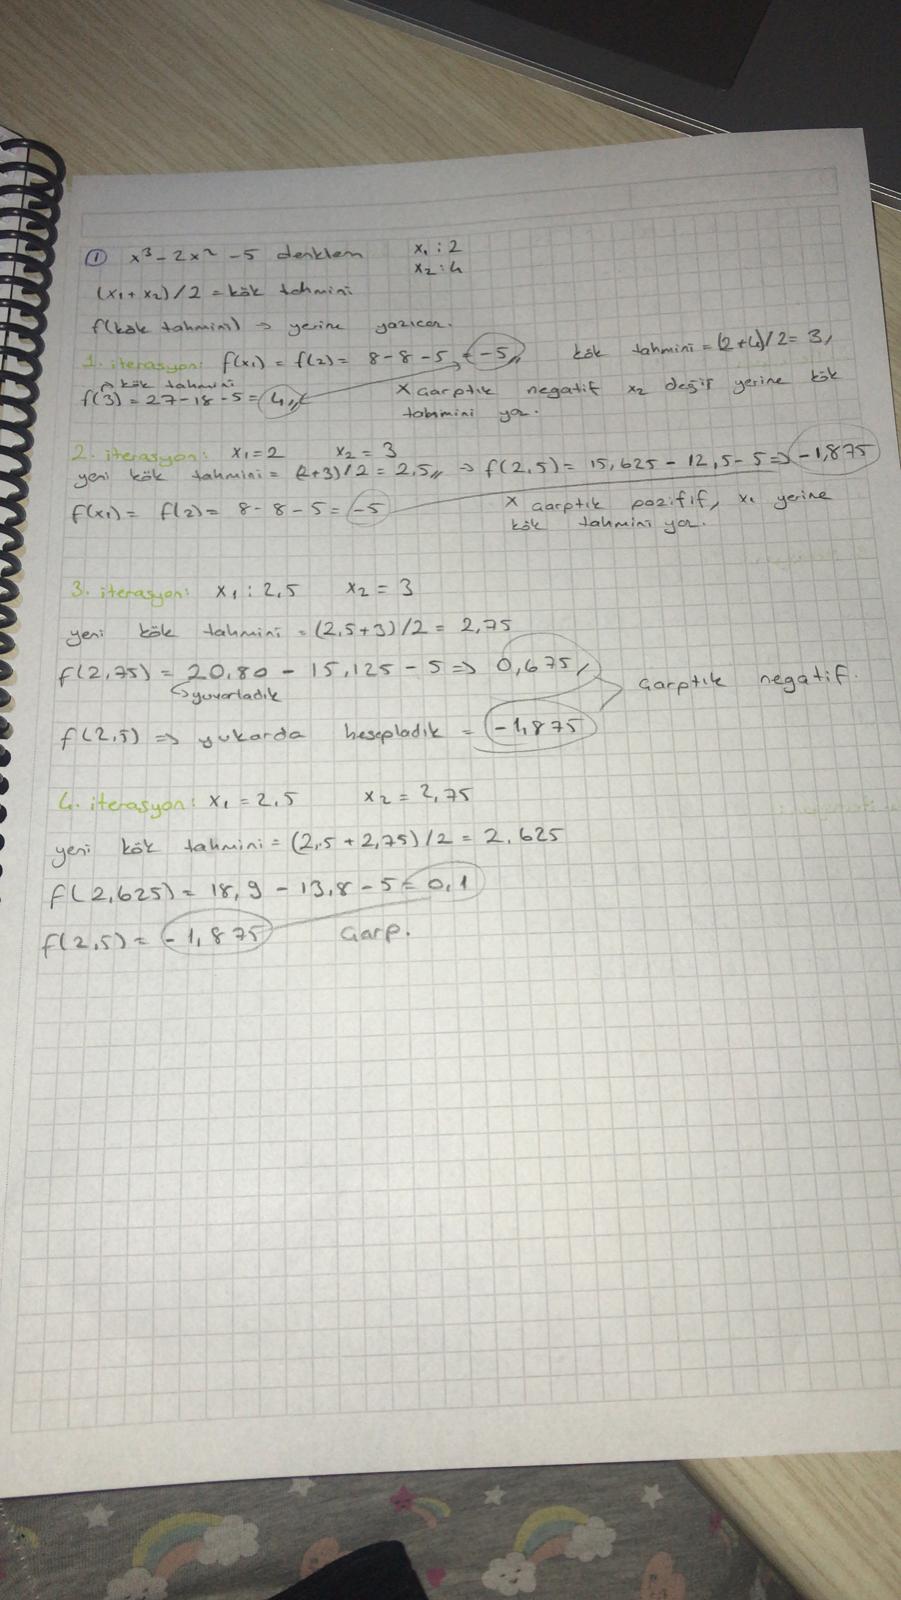 ① x³ - 2x² - 5 denklem x₁ : 2
x₂ : 4
(x₁ + x₂) / 2 = kök tahmini
f(kök tahmini) → yerine yazıcaz.
1. iterasyon: f(x₁) = f(2) = 8 - 8 - 5 = -5,, kök tahmini = (2+4)/2 = 3,
kök tahmini
f(3) = 27 - 18 - 5 = 4,, x çarptık negatif x₂ değiş yerine kök
tahmini yaz.
2. iterasyon: x₁ = 2 x₂ = 3
yeni kök tahmini = (2+3)/2 = 2,5,, → f(2,5) = 15,625 - 12,5 - 5 ⇒ -1,875
f(x₁) = f(2) = 8 - 8 - 5 = -5 x çarptık pozifif, x₁ yerine
kök tahmini yaz.
3. iterasyon: x₁ : 2,5 x₂ = 3
yeni kök tahmini = (2,5+3)/2 = 2,75
f(2,75) = 20,80 - 15,125 - 5 ⇒ 0,675,
yuvarladık çarptık negatif.
f(2,5) ⇒ yukarda hesapladık = -1,875
4. iterasyon: x₁ = 2,5 x₂ = 2,75
yeni kök tahmini = (2,5 + 2,75) / 2 = 2,625
f(2,625) = 18,9 - 13,8 - 5 = 0,1
f(2,5) = -1,875 çarp.